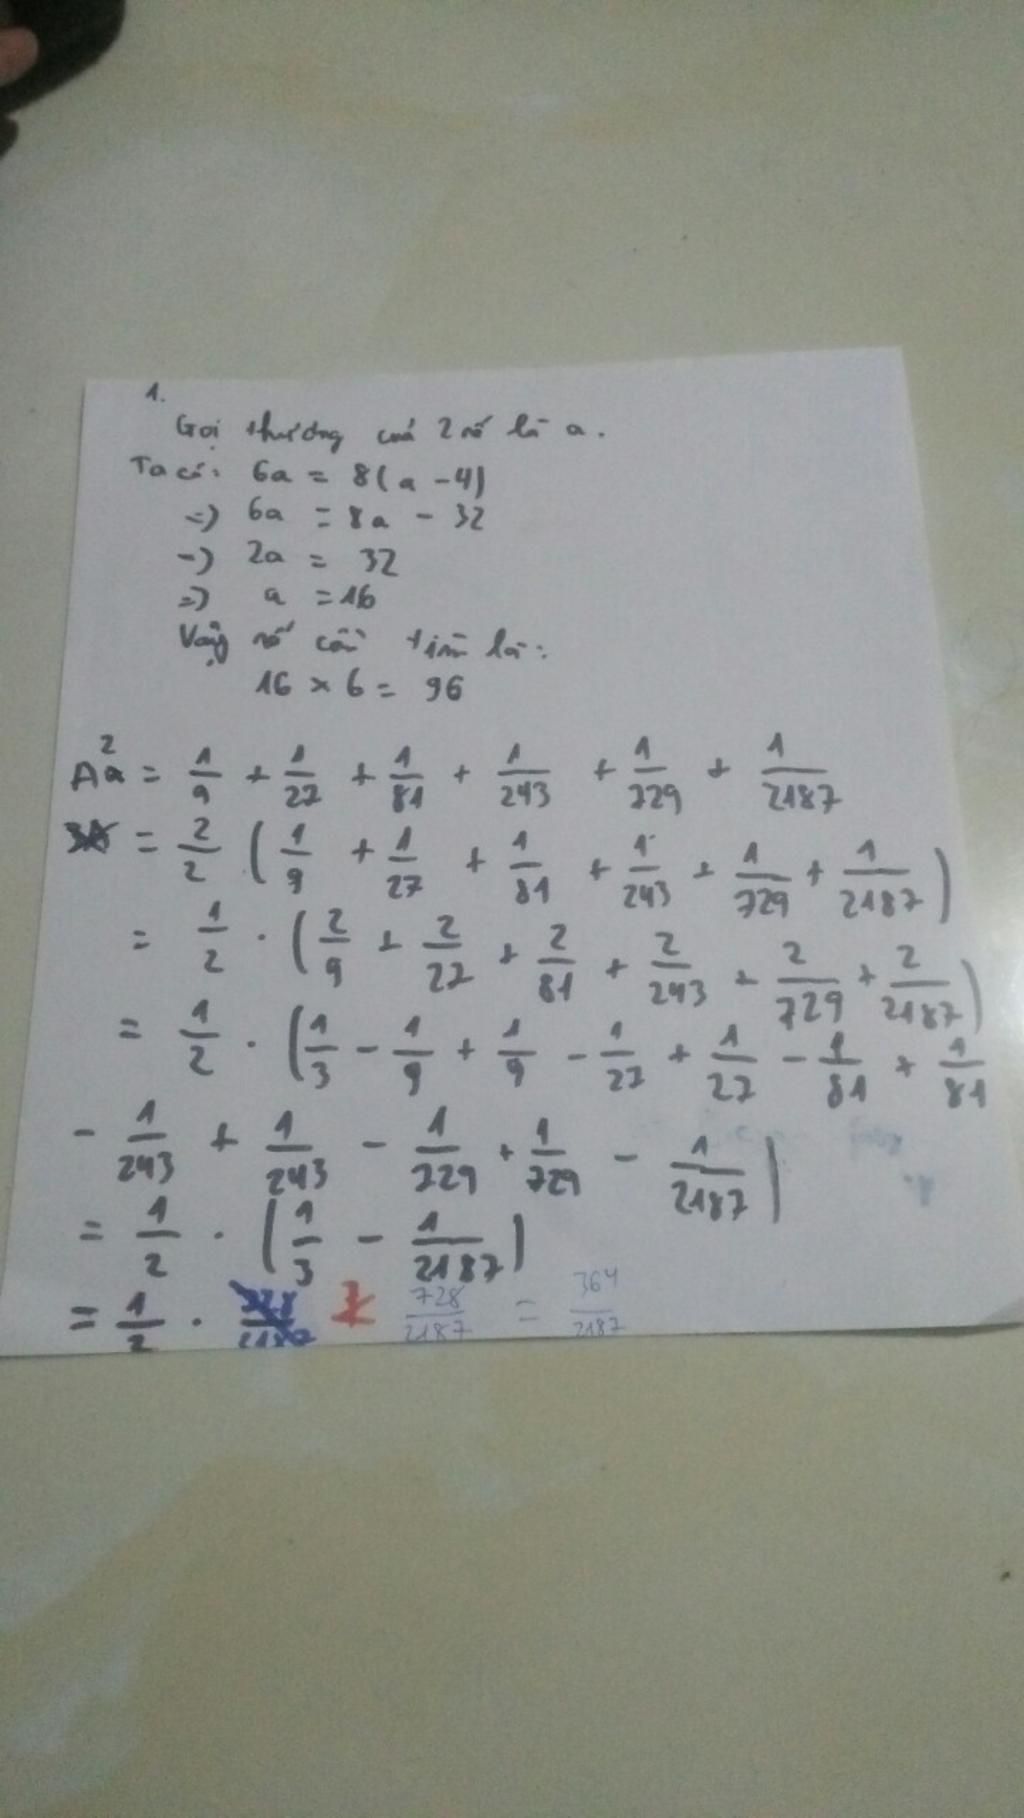 1.
Gọi thương của 2 số là a.
Ta có: 6a = 8(a - 4)
=> 6a = 8a - 32
=> 2a = 32
=> a = 16
Vậy số cần tìm là:
16 × 6 = 96
2
Aa = 1/9 + 1/27 + 1/81 + 1/243 + 1/729 + 1/2187
= 2/2 (1/9 + 1/27 + 1/81 + 1/243 + 1/729 + 1/2187)
= 1/2 . (2/9 + 2/27 + 2/81 + 2/243 + 2/729 + 2/2187)
= 1/2 . (1/3 - 1/9 + 1/9 - 1/27 + 1/27 - 1/81 + 1/81
- 1/243 + 1/243 - 1/729 + 1/729 - 1/2187)
= 1/2 . (1/3 - 1/2187)
= 1/2 . 728/2187 = 364/2187